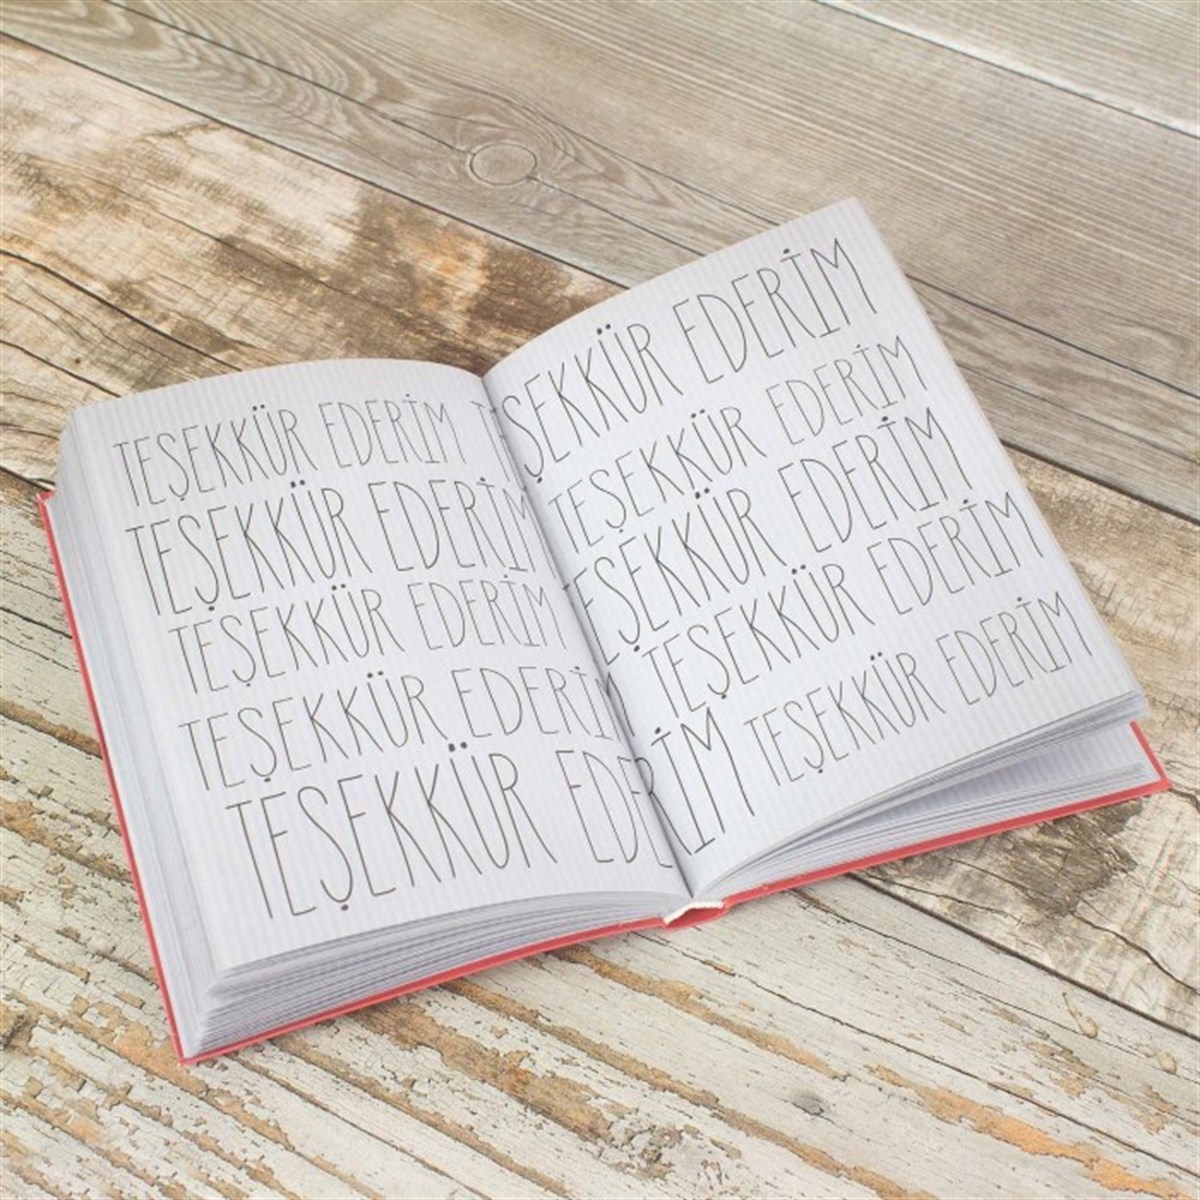 TEŞEKKÜR EDERİM
TEŞEKKÜR EDERİM
TEŞEKKÜR EDERİM
TEŞEKKÜR EDERİM
TEŞEKKÜR EDERİM
ŞEKKÜR EDERİM
TEŞEKKÜR EDERİM
TEŞEKKÜR EDERİM
TEŞEKKÜR EDERİM
TEŞEKKÜR EDERİM